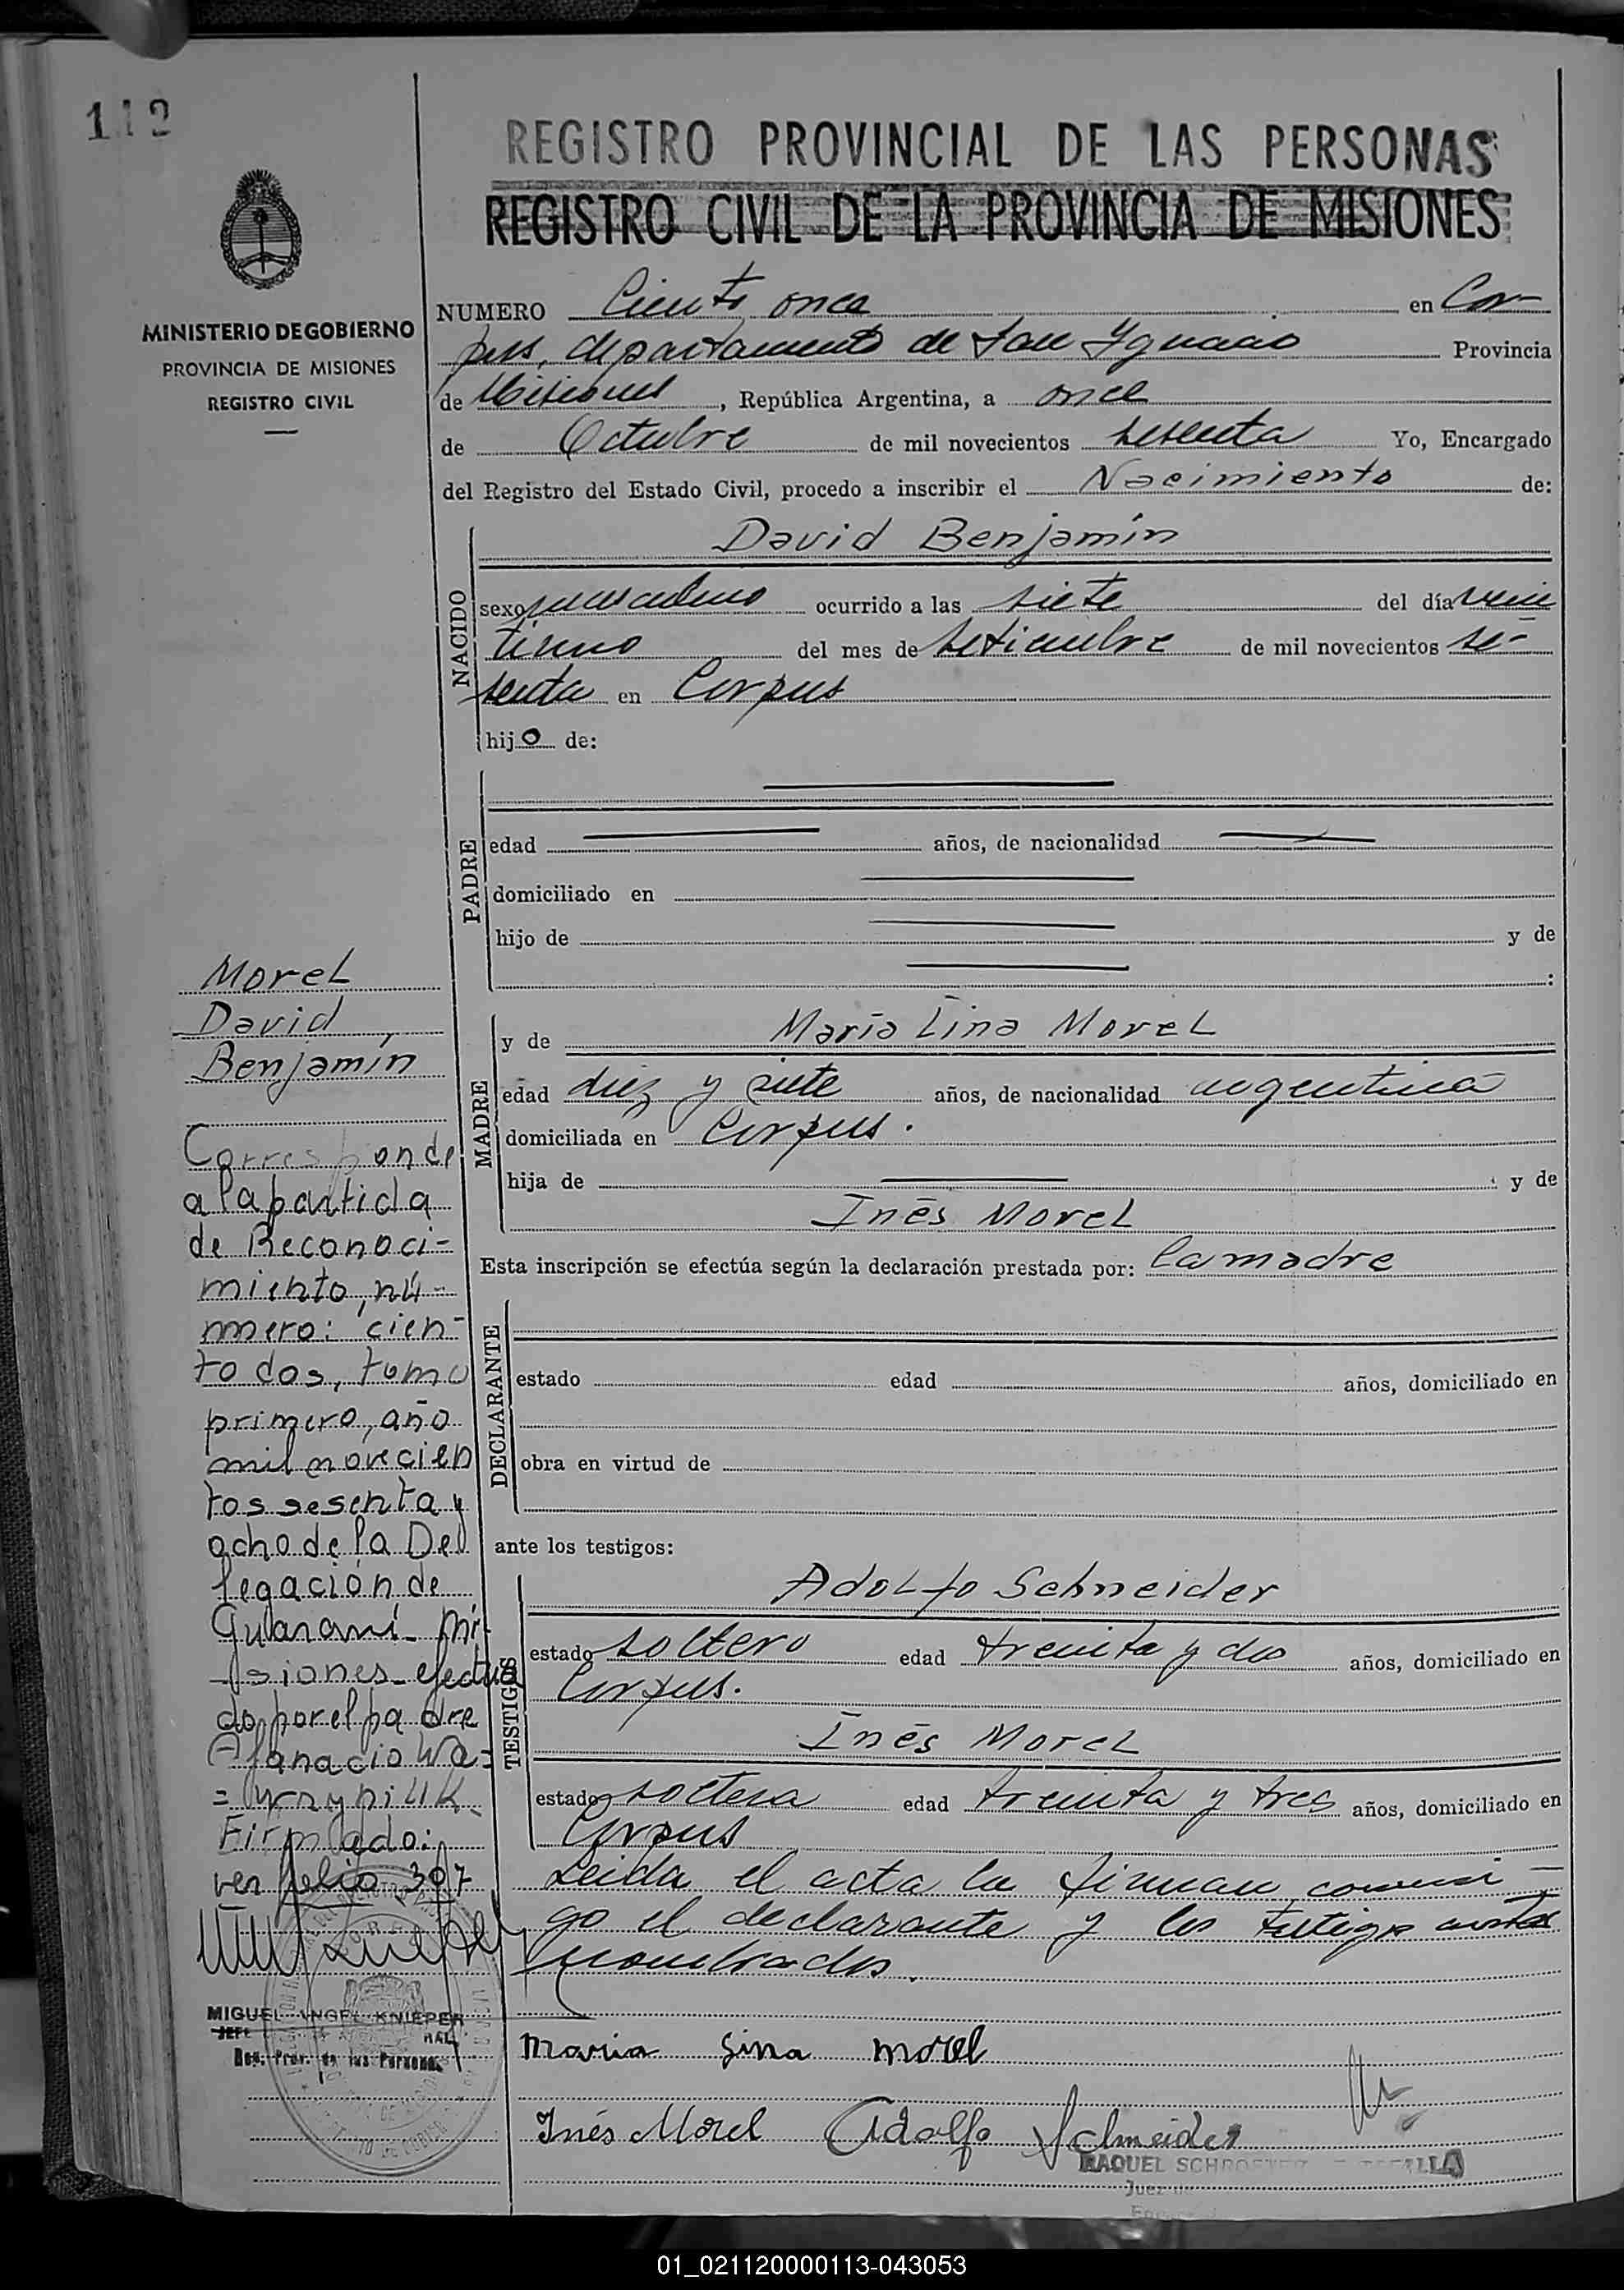 112
REGISTRO PROVINCIAL DE LAS PERSONAS
REGISTRO CIVIL DE LA PROVINCIA DE MISIONES
MINISTERIO DE GOBIERNO
PROVINCIA DE MISIONES
REGISTRO CIVIL
NUMERO Ciento once en Cor-
pus, departamento de San Ygnacio Provincia
de Misiones, República Argentina, a once
de Octubre de mil novecientos sesenta Yo, Encargado
del Registro del Estado Civil, procedo a inscribir el Nacimiento de:
NACIDO
David Benjamín
sexo masculino ocurrido a las siete del día vein
tiuno del mes de setiembre de mil novecientos se-
senta en Corpus
hijo de:
PADRE
edad años, de nacionalidad
domiciliado en
hijo de y de
:
MADRE
y de María Lina Morel
edad diez y siete años, de nacionalidad argentina
domiciliada en Corpus.
hija de y de
Inés Morel
Esta inscripción se efectúa según la declaración prestada por: la madre
DECLARANTE
estado edad años, domiciliado en
obra en virtud de
ante los testigos:
TESTIGOS
Adolfo Schneider
estado soltero edad treinta y dos años, domiciliado en
Corpus.
Inés Morel
estado soltera edad treinta y tres años, domiciliado en
Corpus
Leída el acta la firman conmi-
go el declarante y los testigos antes
nombrados.
Maria Lina Morel
Inés Morel Adolfo Schneider
RAQUEL
Juez
Morel
David
Benjamín
Corresponde
a la partida
de Reconoci-
miento, nú-
mero: cien-
to dos, tomo
primero, año
mil novecien
tos sesenta y
ocho de la Del
legación de
Guaraní- Mi-
siones- efectua
do por el padre
Afanacio Wa-
=wrzyniuk
Firmado:
ver folio 307
MIGUEL ANGEL KNIEPER
JEFE
Reg. Prov. de las Personas
01_021120000113-043053